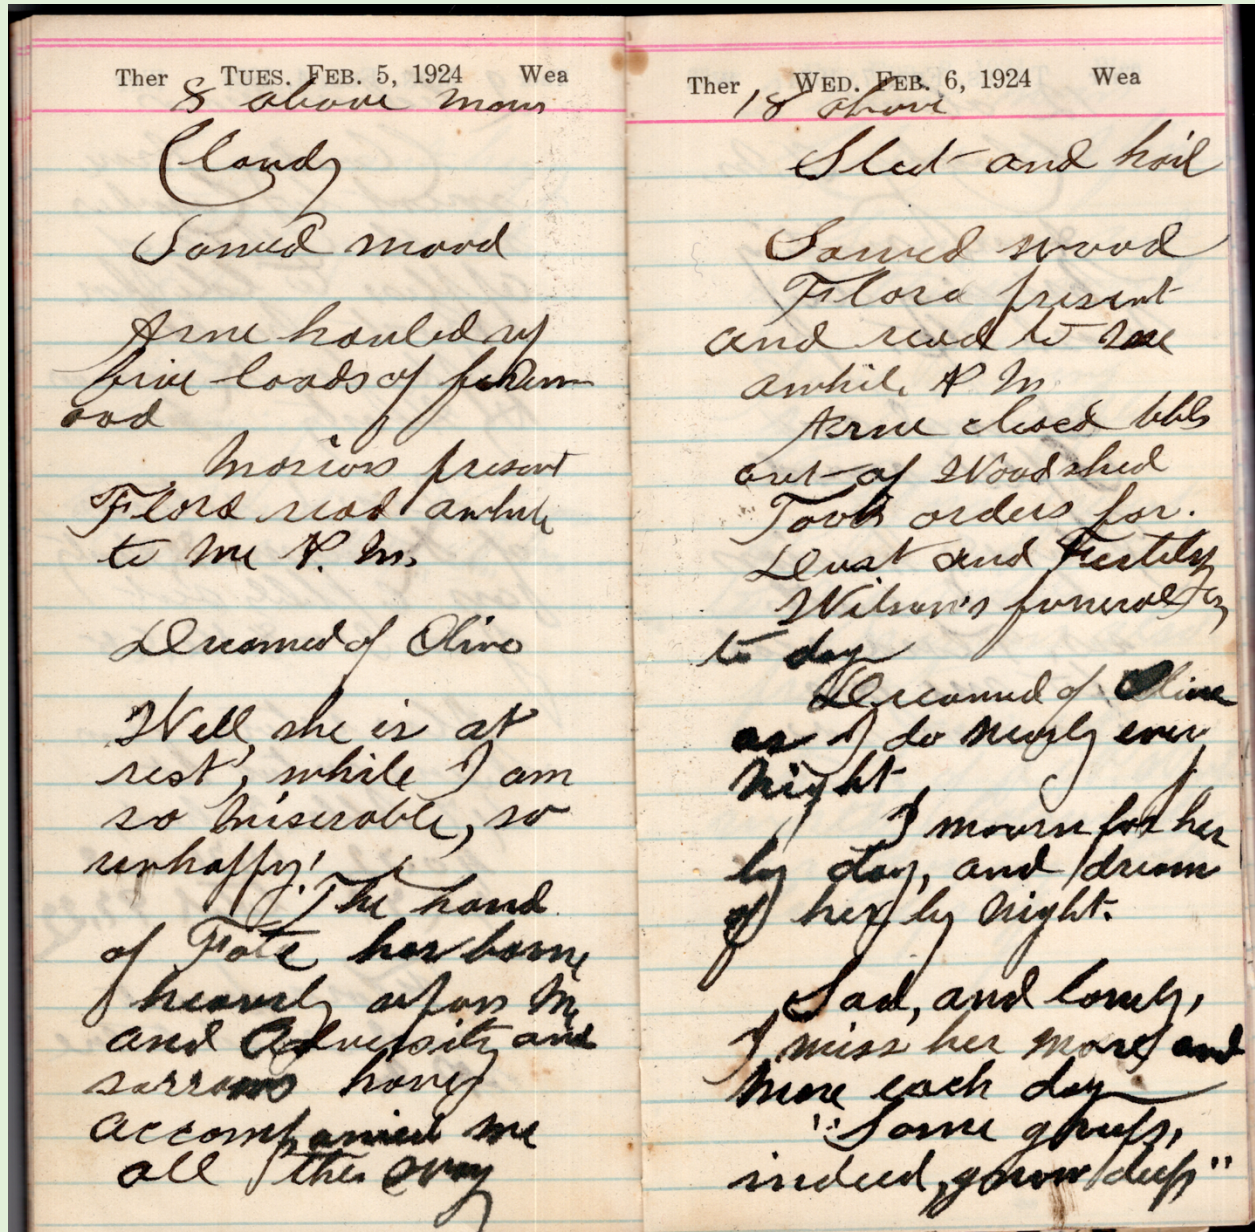 Ther TUES. FEB. 5, 1924 Wea
8 above morn
Cloudy
Sawed wood
Arne hauled up
five loads of
ood
Marion present
Flora read awhile
to me P. M.
Dreamed of Olive
Well, she is at
rest, while I am
so miserable, so
unhappy! The hand
of Fate has borne
heavily upon me
and Adversity and
sorrows have
accompanied me
all the way
Ther WED. FEB. 6, 1924 Wea
18 above
Sleet and hail
Sawed wood
Flora present
and read to me
awhile P M
Arne closed bbls
out of Woodshed
Took orders for.
Dust and Fertilizer
Wilson's funeral
to day
Dreamed of Olive
as I do nearly ever
night
I mourn for her
by day, and dream
of her by night.
Sad, and lonely,
I miss her more and
more each day
"Some griefs,
indeed, grow deep"